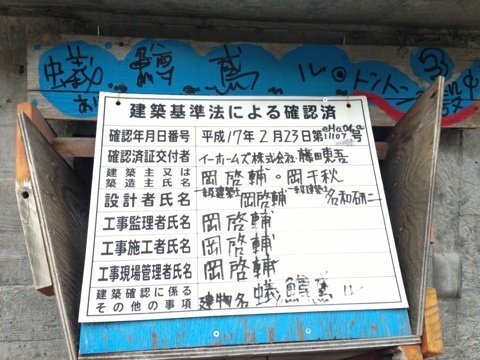 蟻鱒鳶ル。トントン
建築基準法による確認済
確認年月日番号 平成17年2月23日第eHo.04.A 11107号
確認済証交付者 イーホームズ株式会社 藤田東吾
建築主又は築造主氏名 岡啓輔。岡千秋
設計者氏名 一級建築士 岡啓輔 一級建築士 名和研二
工事監理者氏名 岡啓輔
工事施工者氏名 岡啓輔
工事現場管理者氏名 岡啓輔
建築確認に係るその他の事項 建物名 蟻鱒鳶ル